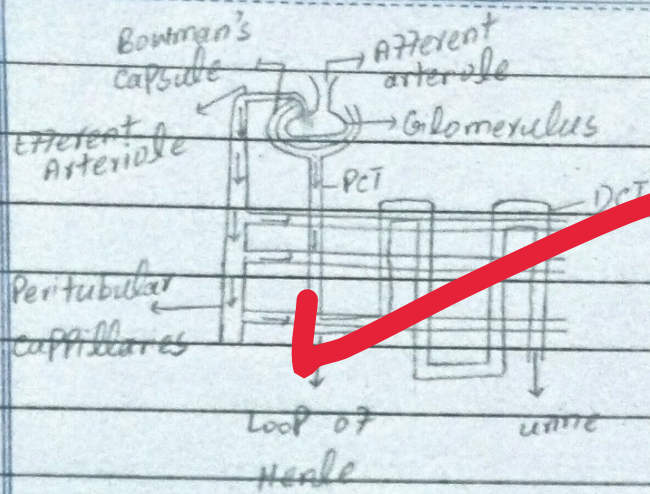 Bowman's
capsule
Afferent
arteriole
Efferent
Arteriole
Glomerulus
PCT
DCT
Peritubular
cappillaries
Loop of
Henle
urine